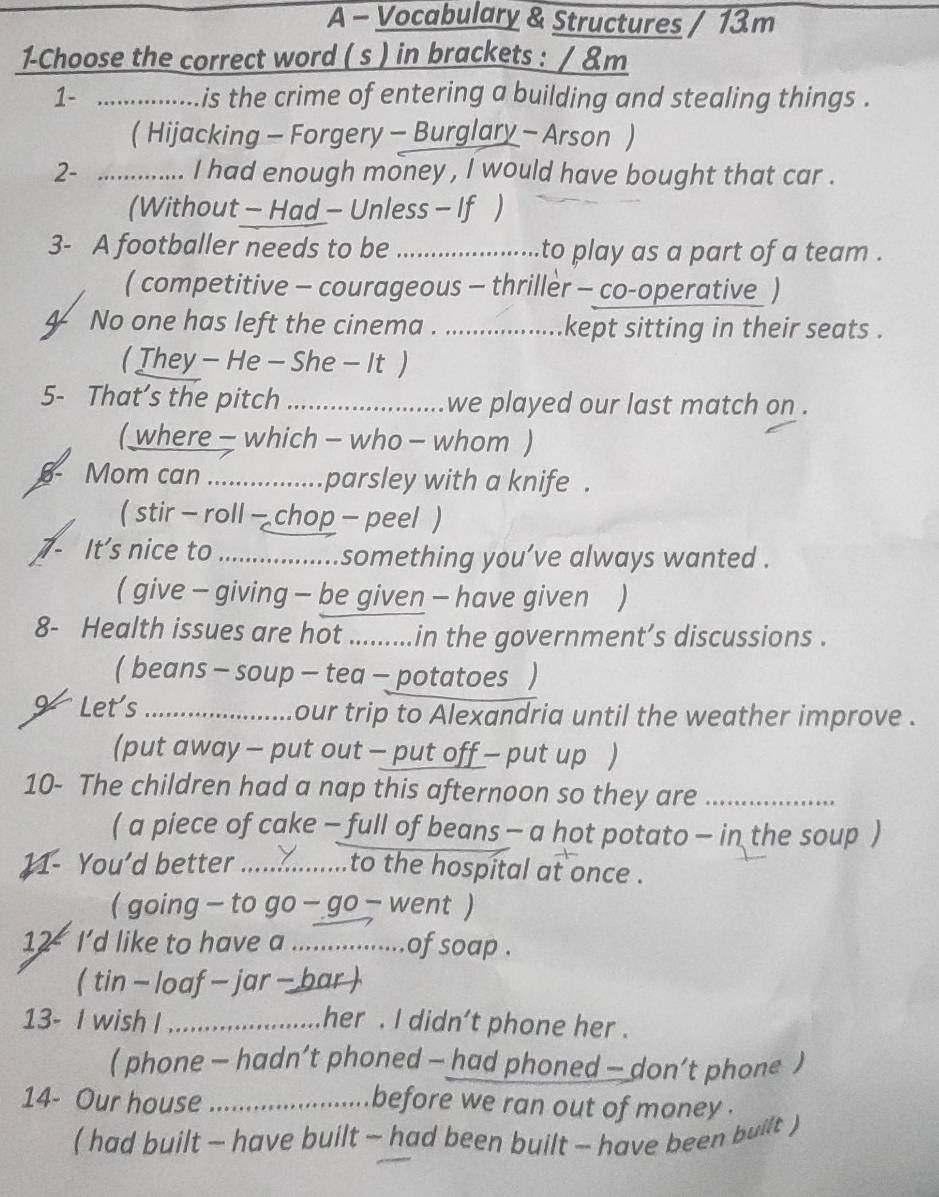 A – Vocabulary & Structures / 13m
1-Choose the correct word ( s ) in brackets : / 8m
1- ...............is the crime of entering a building and stealing things .
( Hijacking – Forgery – Burglary – Arson )
2- ............. I had enough money , I would have bought that car .
(Without – Had – Unless – If )
3- A footballer needs to be ....................to play as a part of a team .
( competitive – courageous – thriller – co-operative )
4- No one has left the cinema . .................kept sitting in their seats .
( They – He – She – It )
5- That's the pitch ......................we played our last match on .
( where – which – who – whom )
6- Mom can ................parsley with a knife .
( stir – roll – chop – peel )
7- It's nice to .................something you've always wanted .
( give – giving – be given – have given )
8- Health issues are hot .........in the government's discussions .
( beans – soup – tea – potatoes )
9- Let's .....................our trip to Alexandria until the weather improve .
(put away – put out – put off – put up )
10- The children had a nap this afternoon so they are ..................
( a piece of cake – full of beans – a hot potato – in the soup )
11- You'd better ...............to the hospital at once .
( going – to go – go – went )
12- I'd like to have a ................of soap .
( tin – loaf – jar – bar )
13- I wish I .....................her . I didn't phone her .
( phone – hadn't phoned – had phoned – don't phone )
14- Our house ......................before we ran out of money .
( had built – have built – had been built – have been built )